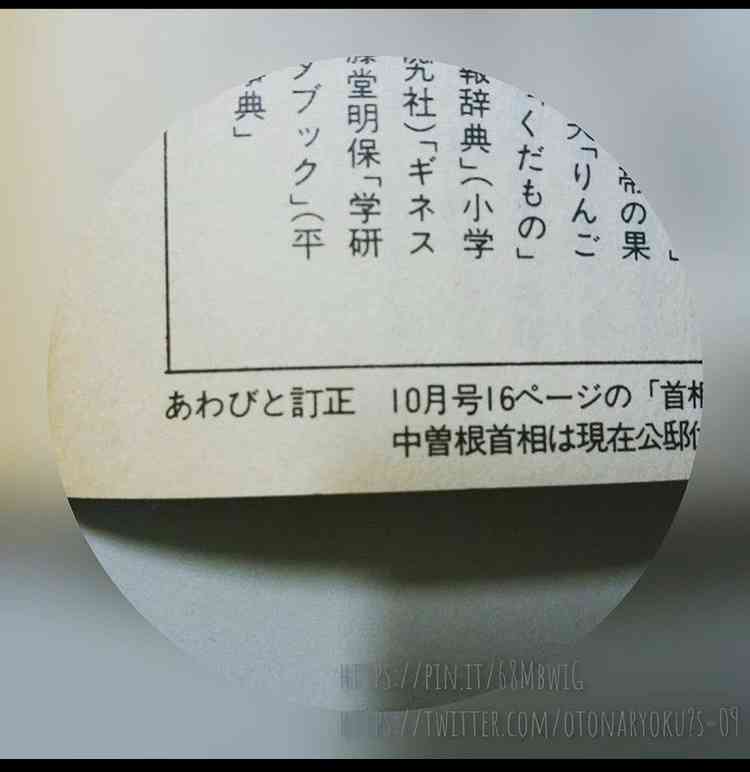 」
の果
「りんご
くだもの」
報辞典」(小学
究社)「ギネス
藤堂明保「学研
タブック」(平
典」
あわびと訂正　10月号16ページの「首相
中曽根首相は現在公邸
HTTPS://PIN.IT/68MBWIG
HTTPS://TWITTER.COM/OTONARYOKU?S=09